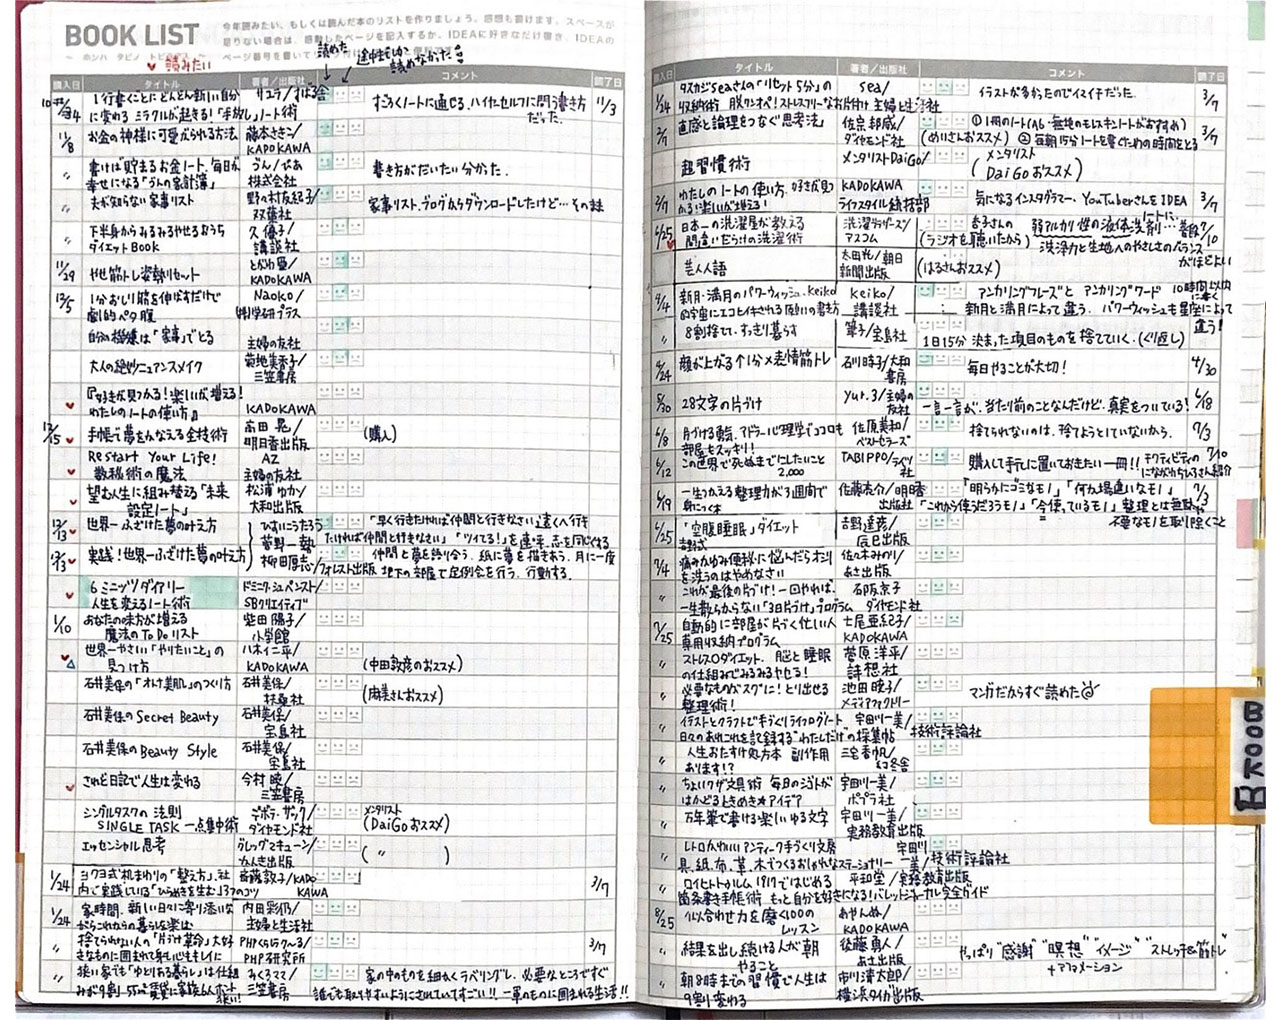 BOOK LIST
今年読みたい、もしくは読んだ本のリストを作りましょう。感想も書けます。スペースが
足りない場合は、感動したページを記入するか、IDEAに好きなだけ書き、IDEAの
～ ホンハ タビノ トビラデス ～
ページ番号を書いて
♥ 読みたい
読めた
途中までしか
読めなかった
購入日 タイトル 著者/出版社 コメント 読了日
1行書くごとにどんどん新しい自分 リュウ/すばる舎
に変わる ミラクルが起きる!「手放し」ノート術
すごろくノートに通じる。ハイヤーセルフに問う書き方だった。 11/3
11/8 お金の神様に可愛がられる方法 藤本さきこ/KADOKAWA
〃 書けば貯まるお金ノート、毎日が幸せになる"づんの家計簿" づん/ぴあ株式会社 書き方がだいたい分かった。
〃 夫が知らない家事リスト 野々村友紀子/双葉社 家事リスト、ブログからダウンロードしたけど…その
〃 下半身からみるみるやせるおうちダイエットBOOK 久優子/講談社
11/29 やせ筋トレ姿勢リセット とがわ愛/KADOKAWA
12/5 1分おしり筋を伸ばすだけで劇的ペタ腹 Naoko/(株)学研プラス
自分の機嫌は「家事」でとる 主婦の友社
大人の絶妙ニュアンスメイク 菊地美香子/三笠書房
♥ 『好きが見つかる!楽しいが増える!わたしのノートの使い方』 KADOKAWA
12/15 ♥ 手帳で夢をかなえる全技術 高田晃/明日香出版 (購入)
♥ Restart Your Life! 数秘術の魔法 AZ 主婦の友社
♥ 望む人生に組み替える「未来設定ノート」 松浦ゆか/大和出版
12/13 世界一ふざけた夢の叶え方 ひすいこたろう
菅野一勢
柳田厚志/フォレスト出版
「早く行きたければ仲間と行きなさい」遠くへ行き
たければ仲間と行きなさい」「ツイてる!」を連呼。志を同じくする
12/13 実践!世界一ふざけた夢の叶え方
仲間と夢を語り合う。紙に夢を描きあう。月に一度
地下の部屋で定例会を行う。行動する。
♥ 6ミニッツダイアリー 人生を変えるノート術 ドミニク・シュペンスト/SBクリエイティブ
1/10 あなたの味方が増える魔法のTo Doリスト 柴田陽子/小学館
♥ 世界一やさしい「やりたいこと」の見つけ方 八木仁平/KADOKAWA (中田敦彦のおススメ)
石井美保の「オトナ美肌」のつくり方 石井美保/扶桑社 (麻美さんおススメ)
石井美保のSecret Beauty 石井美保/宝島社
石井美保のBeauty Style 石井美保/宝島社
♥ されど日記で人生は変わる 今村暁/三笠書房
シングルタスクの法則 SINGLE TASK 一点集中術 デボラ・ザック/ダイヤモンド社 メンタリスト(DaiGoおススメ)
エッセンシャル思考 グレッグマキューン/かんき出版 ( 〃 )
1/24 コクヨ式机まわりの「整え方」、社内で実践している「ひらめきを生む」37のコツ 齋藤敦子/KADOKAWA 3/7
1/24 家時間。新しい日々に寄り添いながらこれからの暮らしを楽しむ 内田彩仍/主婦と生活社
〃 捨てられない人の「片づけ革命」大好きなものに囲まれて身も心もキレイに PHPくらしラク～る/PHP研究所 3/7
〃 狭い家でも「ゆとりある暮らし」は仕組みが9割 みくろママ/三笠書房
家の中のものを細かくラベリングし、必要なところですぐ
誰でも取りやすいようにされていてすごい!! 一軍のものに囲まれる生活!!
タイトル 著者/出版社 コメント 読了日
1/24 タスカジseaさんの「リセット5分」の収納術 脱ワンオペ!ストレスフリーなお片付け sea/主婦と生活社 イラストが多かったのでイマイチだった。 3/7
2/7 直感と論理をつなぐ思考法 佐宗邦威/ダイヤモンド社 (めいさんおススメ)
①1冊のノート(A6・無地のモレスキンノートがおすすめ)
②毎朝15分ノートを書くための時間をとる 3/7
超習慣術 メンタリストDaiGo/ (メンタリストDaiGoおススメ)
3/7 わたしのノートの使い方。好きが見つかる!楽しいが増える! KADOKAWA ライフスタイル編集部 気になるインスタグラマー、YouTuberさんをIDEAノートに。 3/7
6/25 ♥ 日本一の洗濯屋が教える間違いだらけの洗濯術 洗濯ブラザーズ/アスコム
杏子さんの(ラジオを聴いたから) 弱アルカリ性の液体洗剤…普段
洗浄力と生地へのやさしさのバランスがほどよい 7/10
芸人人語 太田光/朝日新聞出版 (はるさんおススメ)
4/4 新月・満月のパワーウィッシュ。Keiko的宇宙にエコヒイキされる願いの書き方 Keiko/講談社
アンカリングフレーズとアンカリングワード 10時間以内に書く
新月と満月によって違う。パワーウィッシュも星座によって違う!
〃 8割捨てて、すっきり暮らす 筆子/宝島社 1日15分 決まった項目のものを捨てていく。(くり返し)
4/24 顔が上がる↑1分×表情筋トレ 石川時子/大和書房 毎日やることが大切! 4/30
5/30 28文字の片づけ yur.3/主婦の友社 一言一言が、当たり前のことなんだけど、真実をついている! 6/18
6/8 片づける勇気、アドラー心理学でココロも部屋もスッキリ! 佐原美和/ベストセラーズ 捨てられないのは、捨てようとしていないから。 7/3
6/12 この世界で死ぬまでにしたいこと2,000 TABIPPO/ライツ社 購入して手元に置いておきたい一冊!! 7/10
6/19 一生つかえる整理力が3週間で身につく本 佐藤亮介/明日香出版社
「明らかにゴミなモノ」「何か場違いなモノ」
「これから使うだろうモノ」「今使っているモノ」整理とは無駄や
不要なモノを取り除くこと 7/3
6/25 「空腹睡眠」ダイエット 吉野式 吉野達彦/辰巳出版
7/4 痛みかゆみ便秘に悩んだらオシリを洗うのはやめなさい 佐々木みのり/あさ出版
〃 これが最後の片づけ!一回やれば、一生散らからない「3日片づけ」プログラム 石阪京子/ダイヤモンド社
7/25 自動的に部屋が片づく忙しい人専用収納プログラム 七尾亜紀子/KADOKAWA
〃 ストレス0ダイエット。脳と睡眠の仕組みでみるみるやせる! 菅原洋平/詩想社
〃 必要なものがスグに!とり出せる整理術! 池田暁子/メディアファクトリー マンガだからすぐ読めた
イラストとクラフトで手づくりライフログノート 日々のあれこれを記録する"わたしだけ"の採集帖 宇田川一美/技術評論社
人生おたすけ処方本 副作用あります!? 三宅香帆/幻冬舎
ちょいワザ文具術 毎日のシゴトがはかどるときめき★アイデア 宇田川一美/ポプラ社
万年筆で書ける楽しいゆる文字 宇田川一美/実務教育出版
レトロかわいいアンティーク手づくり文房具。紙、布、革、木でつくるおしゃれなステーショナリー 宇田川一美/技術評論社
ロイヒトトゥルム1917ではじめる箇条書き手帳術 もっと自分を好きになる!バレットジャーナル完全ガイド 平和堂/実務教育出版
8/25 似合わせ力を磨く100のレッスン あやんぬ/KADOKAWA
〃 結果を出し続ける人が朝やること 後藤勇人/あさ出版 やっぱり"感謝""瞑想""イメージ""ストレッチ&筋トレ"+アファメーション
〃 朝8時までの習慣で人生は9割変わる 市川清太郎/横浜タイガ出版
BOOK